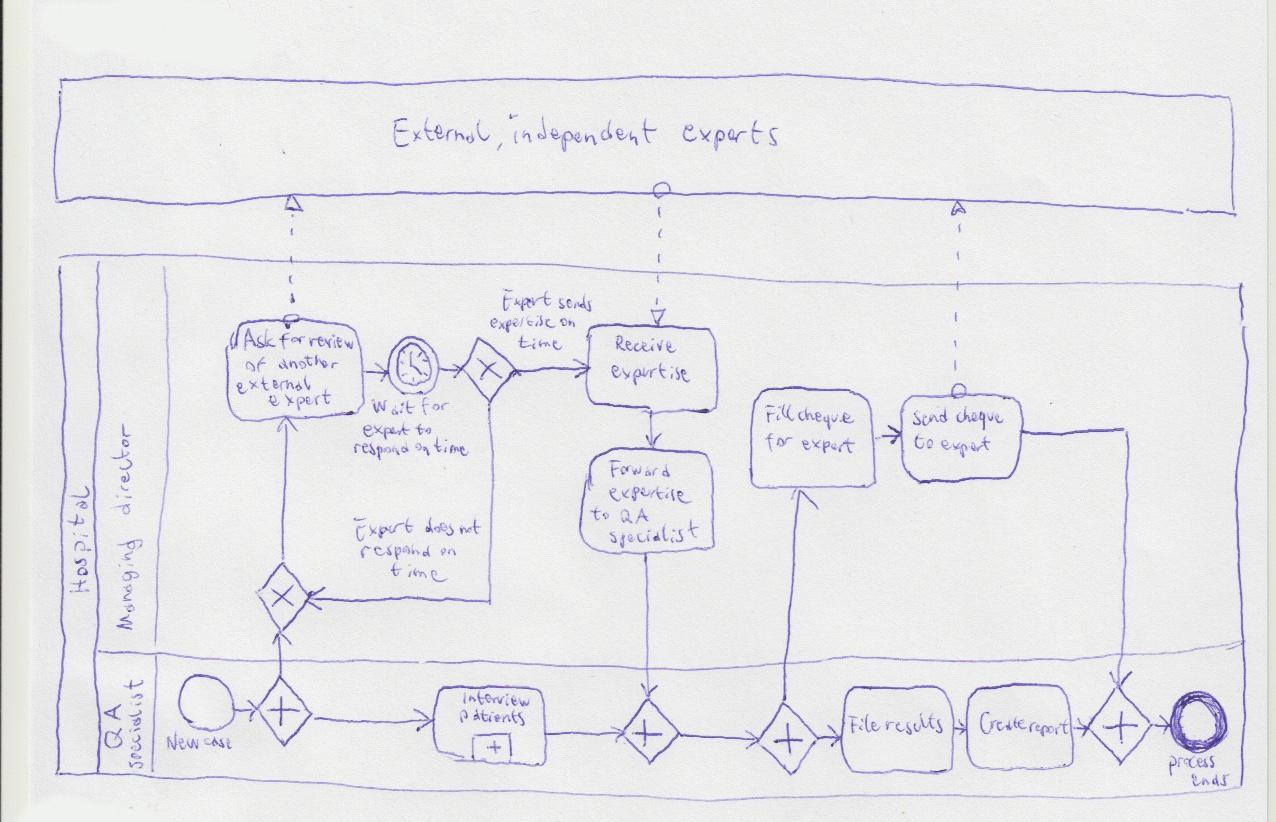 External, independent experts
Hospital
Managing director
Ask for review
of another
external
expert
Wait for
expert to
respond on time
Expert sends
expertise on
time
Expert does not
respond on
time
Receive
expertise
Forward
expertise
to QA
specialist
Fill cheque
for expert
Send cheque
to expert
QA
specialist
New case
Interview
patients
File results
Create report
process
ends